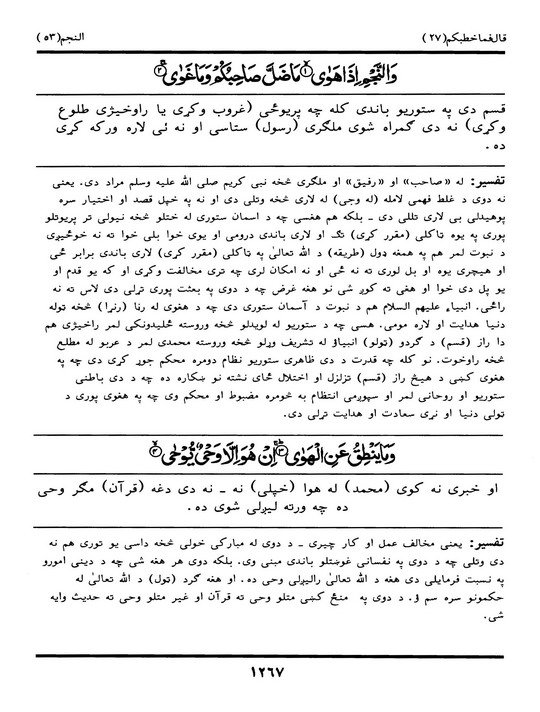 قال فما خطبكم (٢٧)
النجم (٥٣)
وَالنَّجْمِ إِذَا هَوٰى ۙ۱ مَا ضَلَّ صَاحِبُكُمْ وَمَا غَوٰى ۚ۲
قسم دی په ستوریو باندی کله چه پریوځی (غروب وکړی یا راوخیژی طلوع
وکړی) نه دی گمراه شوی ملگری (رسول) ستاسی او نه ئی لاره ورکه کړی
ده .
تفسیر: له «صاحب» او «رفیق» او ملگری څخه نبی کریم صلی الله علیه وسلم مراد دی. یعنی
نه دوی د غلط فهمی لامله (له وجی) له لاری څخه وتلی دی او نه په خپل قصد او اختیار سره
پوهیدلی بی لاری تللی دی ـ بلکه هم هغسی چه د اسمان ستوری له ختلو څخه نیولی تر پریوتلو
پوری په یوه ټاکلی (مقرر کړی) تگ او لاری باندی درومی او یوی خوا بلی خوا ته نه خوځیږی
د نبوت لمر هم په همغه ډول (طریقه) د الله تعالیٰ په ټاکلی (مقرر کړی) لاری باندی برابر ځی
او هیچری یوه او بل لوری ته نه ځی او نه امکان لری چه تری مخالفت وکړی او که یو قدم او
پو پل دی خوا او هغی ته کوږ شی نو هغه غرض چه د دوی په بعثت پوری تړلی دی لاس ته نه
راځی. انبیاء علیهم السلام هم د نبوت د آسمان ستوری دی چه د هغوی له رڼا (رنړا) څخه ټوله
دنیا هدایت او لاره مومی. هسی چه د ستوریو له لویدلو څخه وروسته ځلیدونکی لمر راخیژی هم
دا راز (قسم) د گردو (ټولو) انبیاؤ له تشریف وړلو څخه وروسته محمدی لمر د عربو له مطلع
څخه راوخوت. نو که چه قدرت د دی ظاهری ستوریو نظام دومره محکم جوړ کړی دی چه په
هغوی کښی د هیڅ راز (قسم) تزلزل او اختلال ځای نشته نو ښکاره ده چه د دی باطنی
ستوریو او روحانی لمر او سپوږمی انتظام به څومره مضبوط او محکم وی چه په هغوی پوری د
ټولی دنیا او نړی سعادت او هدایت تړلی دی.
وَمَا يَنْطِقُ عَنِ الْهَوٰى ۳ إِنْ هُوَ إِلَّا وَحْيٌ يُّوْحٰى ۙ۴
او خبری نه کوی (محمد) له هوا (خپلی) نه ـ نه دی دغه (قرآن) مگر وحی
ده چه ورته لیږلی شوی ده.
تفسیر: یعنی مخالف عمل او کار چیری ـ د دوی له مبارکی خولی څخه داسی یو توری هم نه
دی وتلی چه د دوی په نفسانی غوښتلو باندی مبنی وی. بلکه دوی هر هغه شی چه د دینی امورو
په نسبت فرمایلی دی هغه د الله تعالیٰ رالیږلی وحی ده. او هغه گرد (ټول) د الله تعالیٰ له
حکمونو سره سم ؤ. د دوی په منځ کښی متلو وحی ته قرآن او غیر متلو وحی ته حدیث وایه
شی.
١٢٦٧